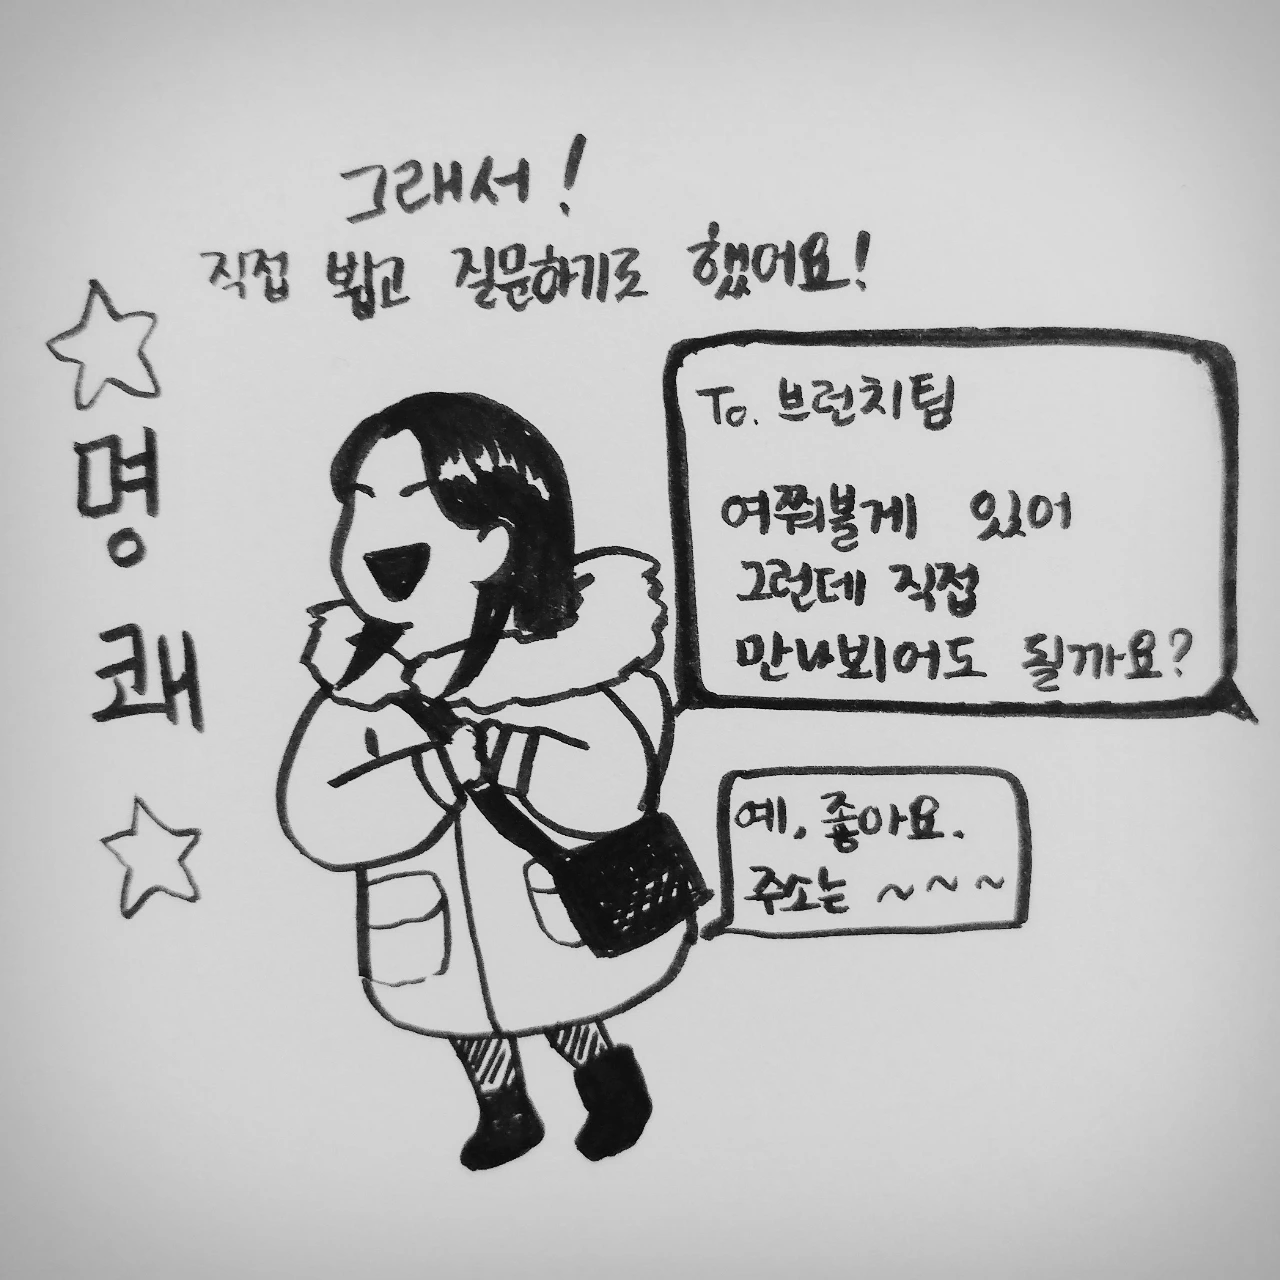 그래서!
직접 뵙고 질문하기로 했어요!
명쾌
To. 브런치팀
여쭤볼게 있어
그런데 직접
만나뵈어도 될까요?
예, 좋아요.
주소는 ~ ~ ~